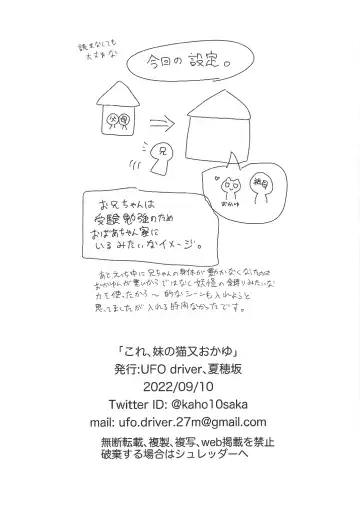 読まなくても
大丈夫な
今回の設定。
父 母
兄
祖母
おかゆ
お兄ちゃんは
受験勉強のため
おばあちゃん家に
いるみたいなイメージ。
あと、えっち中に兄ちゃんの身体が動かなくなったのは
おかゆんが重いからではなく妖怪の金縛りみたいな
力を使ったから〜 的なシーンも入れようと
思ってましたが入れる時間なかったです。
「これ、妹の猫又おかゆ」
発行:UFO driver、夏穂坂
2022/09/10
Twitter ID: @kaho10saka
mail: ufo.driver.27m@gmail.com
無断転載、複製、複写、web掲載を禁止
破棄する場合はシュレッダーへ